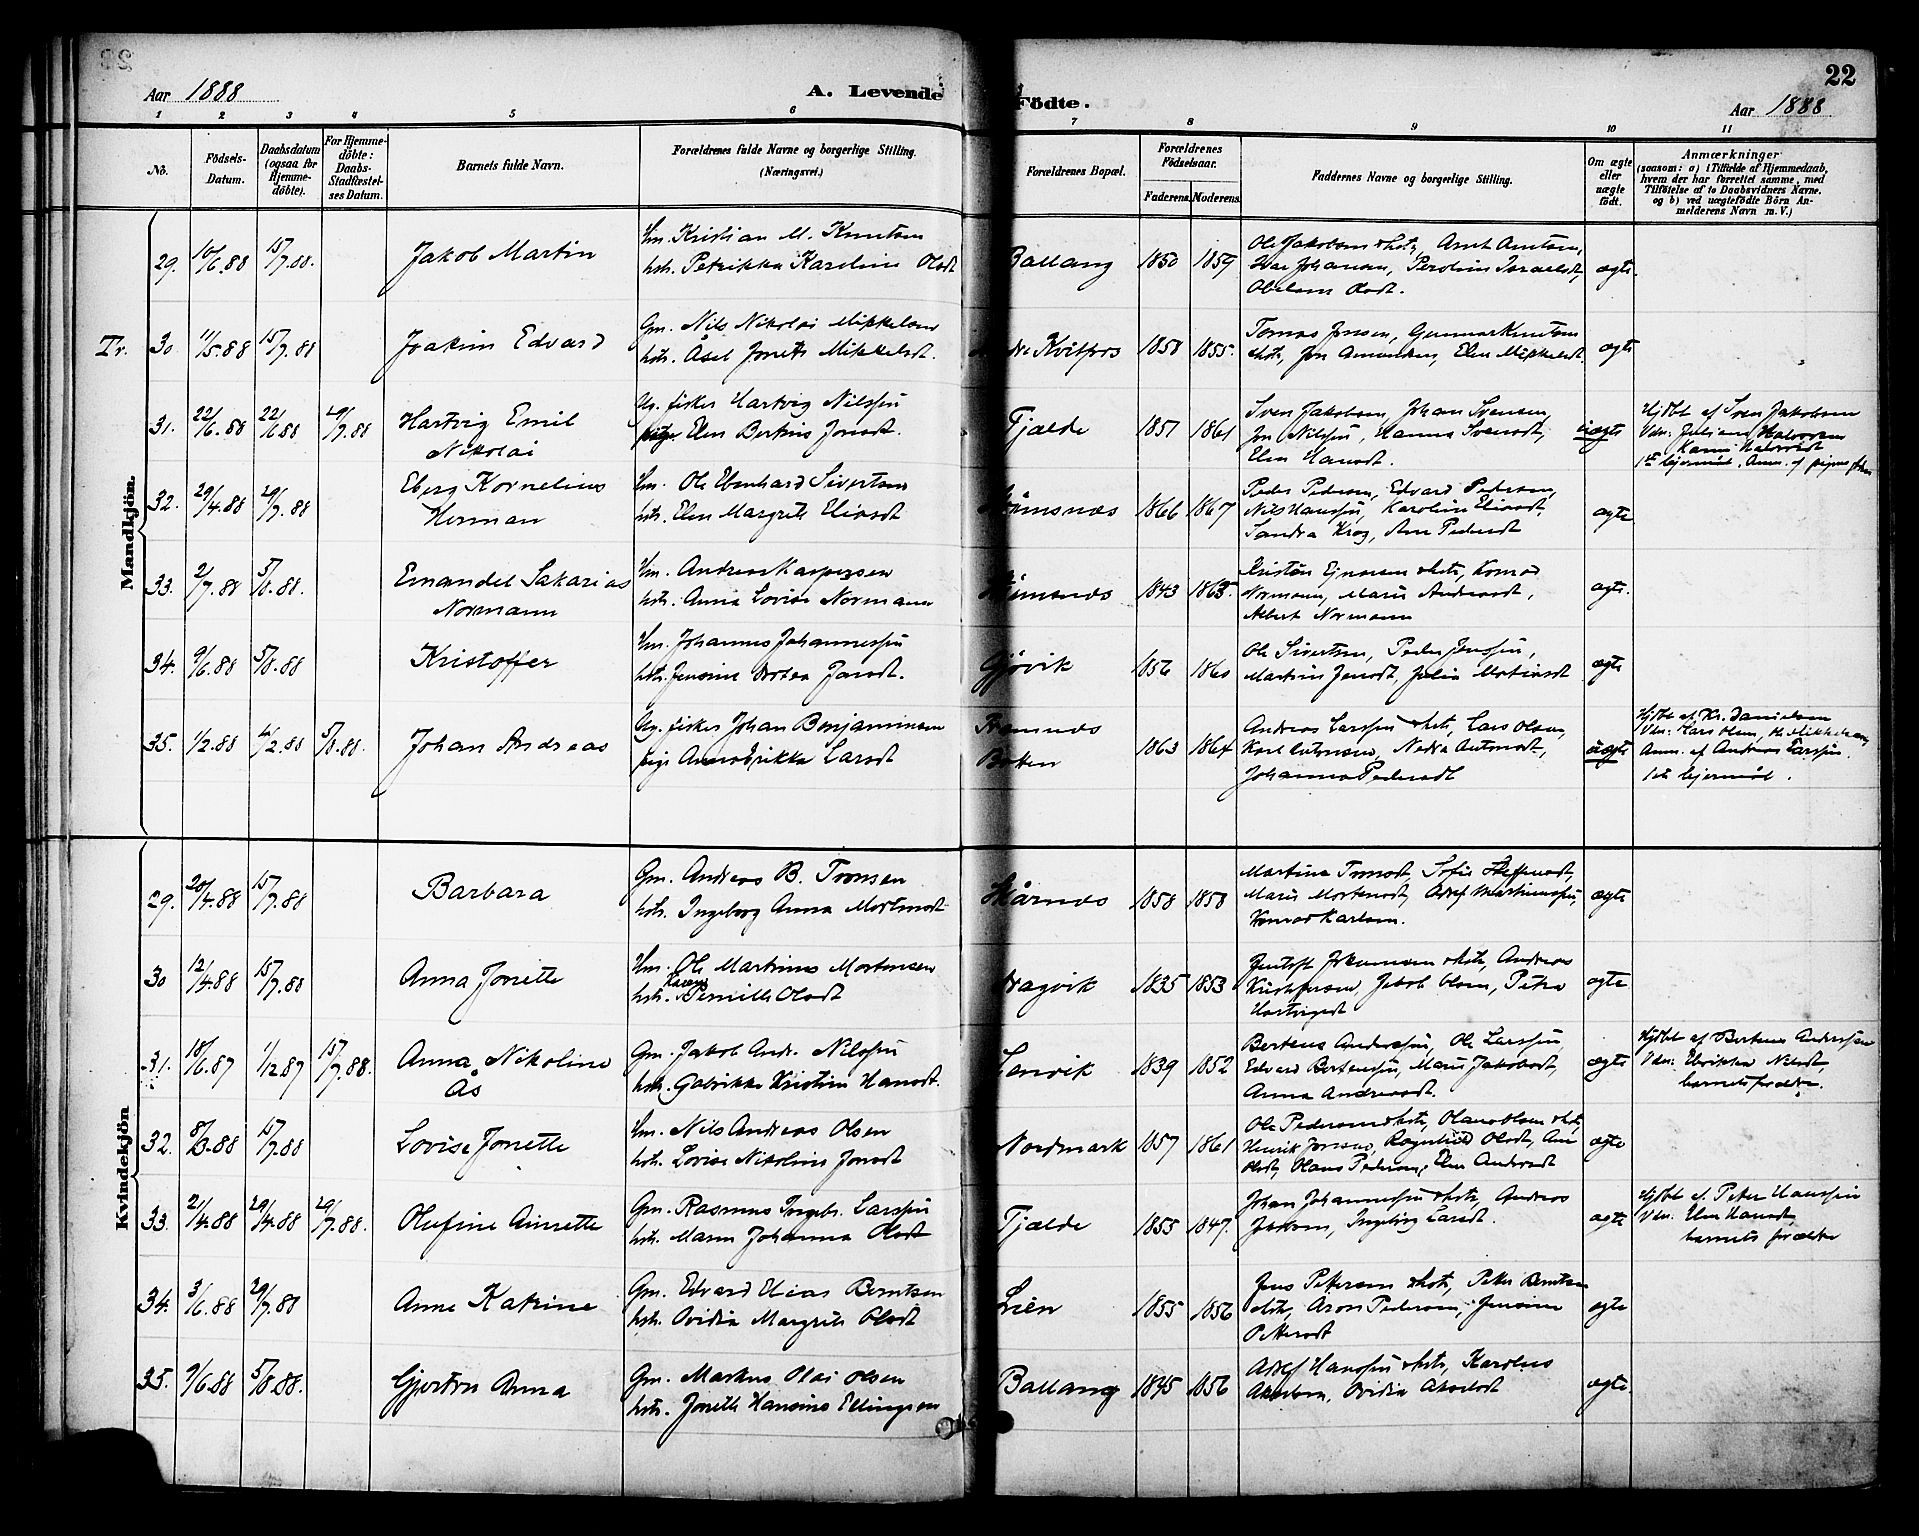 22
Aar 1888
A. Levende Födte.
Aar 1888
1 2 3 4 5 6 7 8 9 10 11
No.
Födsels-
Datum.
Daabsdatum
(ogsaa for
Hjemme-
döbte).
For Hjemme-
döbte:
Daabs-
Stadfæstel-
ses Datum.
Barnets fulde Navn.
Forældrenes fulde Navne og borgerlige Stilling.
(Næringsvei.)
Forældrenes Bopæl.
Forældrenes
Födselsaar.
Faderens. Moderens.
Faddernes Navne og borgerlige Stilling.
Om ægte
eller
uægte
födt.
Anmærkninger
(saasom: a) i Tilfælde af Hjemmedaab,
hvem der har forrettet samme, med
Tilföielse af to Daabsvidners Navne.
og b) ved uægtefödte Börn An-
melderens Navn m. V.)
Mandkjön.
29. 10/6.88 15/7.88. Jakob Martin
Hm. Kristian M. Knutsen
hstr. Petrikka Karoline Olsdt
Ballang 1850 1859
Ole Jakobsen & hstr, Arnt Arntsen,
Johansen,
Olsdt.
ægte.
Tr. 30. 11/5.88 15/7.88 Joakim Edvard
Gm. Nils Nikolai Mikkelsen
hstr. Åsel Jonette Mikkelsdt.
Kvitfors 1858 1855.
Tomas Jensen, Gunnar Knutsen
& hstr, Jon Amundsen, Elen Mikkelsdt.
ægte
31. 22/6.88 22/6.88 29/7.88 Hartvig Emil
Nikolai
Ug. fisker Hartvig Nilssen
pige Elen Bertine Jonsdt.
Fjælde 1857 1861
Sven Jakobsen, Johan Svensen,
Jon Nilssen, Hanna Svensdt,
Elen Hansdt.
uægte
Hjdbt af Sven Jakobsen
Vdn: Juliane Halvorsen
Karen Halvorsdt
1ste leiermål. Anm. af pigens
32. 29/4.88 29/7.88 Eberg Kornelius
Herman
Hm. Ole Ebenhard Sivertsen
hstr. Elen Margrete Eliasdt
1866 1867
Peder Pedersen, Edvard Pedersen,
Nils Hanssen, Karoline Eliasdt,
Sandra Krog, Ane Pedersdt
ægte
33. 2/7.88 5/8.88. Emandel Sakarias
Normann
Hm. Andreas Kaspersen
hstr. Anna Lovise Normann
1843 1863.
Kristen Ejnarsen & hstr, Konrad
Normann, Marie Andreasdt,
Albert Normann
ægte.
34. 9/6.88 5/8.88 Kristoffer
Hm. Johannes Johannessen
hstr. Jensine Dortea Jonsdt.
Gjøvik 1856 1860
Ole Sivertsen, Peder Jenssen,
Martine Jensdt, Julie Mathisdt
ægte
35. 1/2.88 4/2.88 5/8.88. Johan Andreas
Ug. fisker Johan Benjaminsen
pige Larsdt
Framnes
Botten
1863 1864
Andreas Larssen & hstr, Lars Olsen,
Karl Antonsen, Nedia Antonsdt,
Johanna Pedersdt
uægte
Hjdbt af Kr. Danielsen
Vdn: Lars Olsen, Mikkelsen,
Anm. af Andreas Larssen.
1ste leiermål.
Kvindekjön
29. 20/4.88 15/7.88 Barbara
Gm. Andreas B. Tronsen
hstr. Ingeborg Anna Mortensdt
Skårnes 1858 1858
Martina Tronsdt, Sofie Steffensdt,
Marie Mortensdt, Adolf Martinussen,
Konrad Karlsen.
ægte
30 12/4.88 15/7.88 Anna Jonette
Hm. Ole Martinus Mortensen
hstr. Karen Pernille Olsdt
1835 1853
Johansen & hstr, Andreas
Kristofersen, Jakob Olsen, Petra
Hartvigsdt
ægte
31. 18/6.87 1/12.87 15/7.88. Anna Nikoline
Ås
Gm. Jakob Andr. Nilssen
hstr. Gabrikke Kristine Hansdt.
Lenvik 1839 1852
Berteus Anderssen, Ole Larssen,
Edvard Bertenssen, Marie Jakobsdt,
Anna Andreasdt.
ægte
Hjdbt af Berteus Anderssen
Vdn: Ulrikka Nilsdt,
barnets forældre.
32. 8/3.88 15/7.88 Lovise Jonette
Hm. Nils Andreas Olsen
hstr. Lovise Nikoline Jonsdt
Nordmark 1857 1861
Ole Pedersen & hstr, Olaus Olsen & hstr,
Henrik Jonssen, Ragnhild Olsdt, Ane
Olsdt, Olaus Pedersen, Elen Andersdt
ægte
33. 2/4.88 29/4.88 29/7.88. Olufine Ainette
Gm. Rasmus Ingebr. Larssen
hstr. Maren Johanna Olsdt
Fjælde 1855 1847.
Johan Johannessen & hstr, Andreas
Jakobsen, Ingeborg Larsdt.
ægte
Hjdbt af Peter Hanssen
Vdn: Elen Hansdt,
barnets forældre
34. 3/6.88 29/7.88 Anne Katrine
Gm. Edvard Elias Berntsen
hstr. Ovidia Margrete Olsdt
Lien 1855 1856
Jens Pettersen & hstr, Peter Berntsen
& hstr, Aron Pedersen, Jensine
Pettersdt
ægte
35. 9/6.88 5/8.88. Gjertru Anna
Gm. Markus Olai Olsen
hstr. Jonette Hansine Ellingsen
Ballang 1845 1856
Adolf Hanssen & hstr, Karolus
Akselsen, Ovidia Akselsdt
ægte.